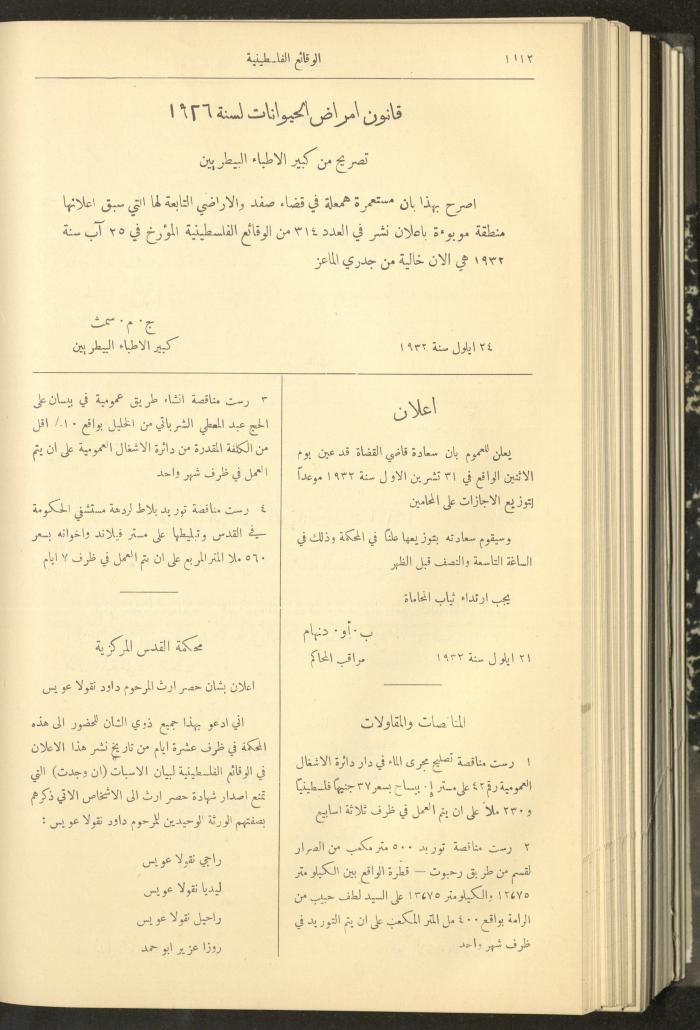 ١١١٢
الوقائع الفلسطينية
قانون امراض الحيوانات لسنة ١٩٢٦
تصريح من كبير الاطباء البيطريين
اصرح بهذا بان مستعمرة همعلة في قضاء صفد والاراضي التابعة لها التي سبق اعلانها
منطقة موبوءة باعلان نشر في العدد ٣١٤ من الوقائع الفلسطينية المؤرخ في ٢٥ آب سنة
١٩٣٢ هي الان خالية من جدري الماعز
ج٠ م٠ سمث
٢٤ ايلول سنة ١٩٣٢
كبير الاطباء البيطريين
اعلان
يعلن للعموم بان سعادة قاضي القضاة قد عين يوم
الاثنين الواقع في ٣١ تشرين الاول سنة ١٩٣٢ موعداً
لتوزيع الاجازات على المحامين
وسيقوم سعادته بتوزيعها علناً في المحكمة وذلك في
الساعة التاسعة والنصف قبل الظهر
يجب ارتداء ثياب المحاماة
ب٠ أو٠ دنهام
٢١ ايلول سنة ١٩٣٢
مراقب المحاكم
المناقصات والمقاولات
١ رست مناقصة تصليح مجرى الماء في دار دائرة الاشغال
العمومية رقم ٤٢ على مستر إ٠ بيساح بسعر ٣٧ جنيهاً فلسطينياً
و ٢٣٠ ملاً على ان يتم العمل في ظرف ثلاثة اسابيع
٢ رست مناقصة توريد ٥٠٠ متر مكعب من الصرار
لقسم من طريق رحبوت – قطرة الواقع بين الكيلومتر
١٢٫٧٥ والكيلومتر ١٣٫٧٥ على السيد لطف حبيب من
الرامة بواقع ٤٠٠ مل المتر المكعب على ان يتم التوريد في
ظرف شهر واحد
٣ رست مناقصة انشاء طريق عمومية في بيسان على
الحج عبد المعطي الشرباتي من الخليل بواقع ١٠٪ اقل
من الكلفة المقدرة من دائرة الاشغال العمومية على ان يتم
العمل في ظرف شهر واحد
٤ رست مناقصة توريد بلاط لردهة مستشفي الحكومة
في القدس وتبليطها على مستر فيلاند واخوانه بسعر
٥٦٠ ملا المتر المربع على ان يتم العمل في ظرف ٧ ايام
محكمة القدس المركزية
اعلان بشان حصر ارث المرحوم داود نقولا عويس
اني ادعو بهذا جميع ذوي الشان للحضور الى هذه
المحكمة في ظرف عشرة ايام من تاريخ نشر هذا الاعلان
في الوقائع الفلسطينية لبيان الاسباب (ان وجدت) التي
تمنع اصدار شهادة حصر ارث الى الاشخاص الاتي ذكرهم
بصفتهم الورثة الوحيدين للمرحوم داود نقولا عويس :
راجي نقولا عويس
ليديا نقولا عويس
راحيل نقولا عويس
روزا عزيز ابو حمد